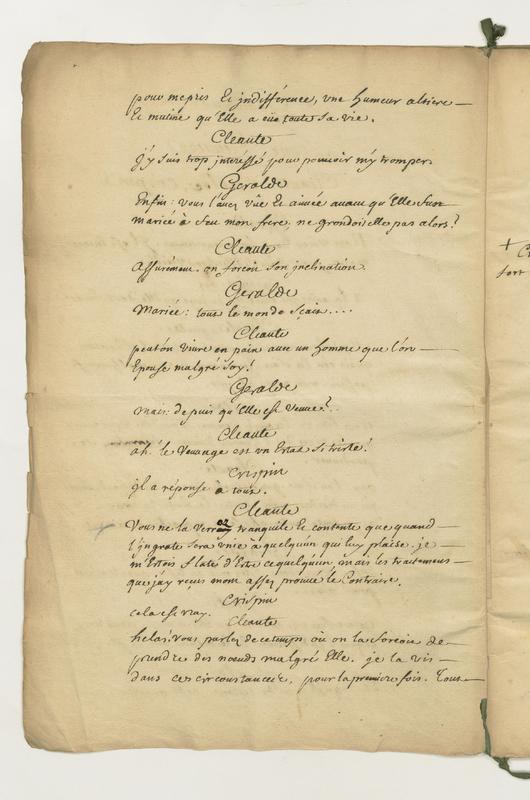 pour mepris Et jndifférence, vne humeur altiere
Et mutine qu'Elle a eüe toute sa vie.
Cleante
J'y suis trop jnteressé pour pouvoir m'y tromper.
Geralde
Enfin: vous l'avez vüe Et aimée avant qu'Elle fust
mariée à feu mon frere; ne grondoit elle pas alors?
Cleante
Assurément. on forcoit son jnclination.
Geralde
Mariée: tout le monde sçait....
Cleante
peut'on vivre en paix avec un homme que l'on
Epouse malgré soy!
Geralde
Mais: depuis qu'Elle est veuve?..
Cleante
ah! le veuvage est vn Estat si triste!
Crispin
il a réponse à tout.
Cleante
Vous ne la verrez tranquile Et contente que quand
l'jngrate sera vnie a quelqu'un qui luy plaise. je
m'Etois flaté d'Estre ce quelqu'un, mais les traitemens
que j'ay reçus m'ont assez prouvé le Contraire.
Crispin
cela est vray.
Cleante
helas: vous parlez de ce temps où on la forcoit de
prendre des noeuds malgré Elle. je la vis
dans ces circonstances, pour la premiere fois. Tout
+ C
fort